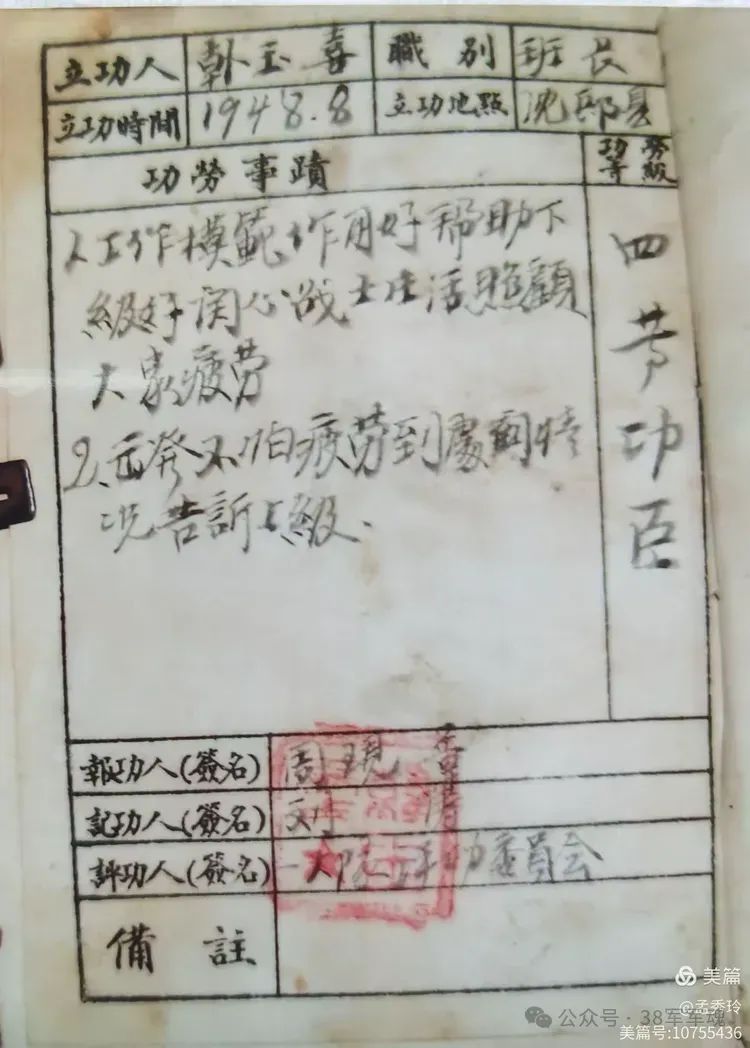 立功人 玉喜 職別 班长
立功時間 1948.8 立功地點 沈邱县
功勞事蹟 功勞等級
1.工作模範作用好帮助下
級好関心战士生活照顧
大家疲劳
2.出發不怕疲劳到處
况告訴上級.
四等功臣
報功人(簽名) 周現
記功人(簽名) 刘
評功人(簽名) 一大隊评功委員会
備註
美篇
@孟秀玲
公众号·38军军魂
美篇号:10755436